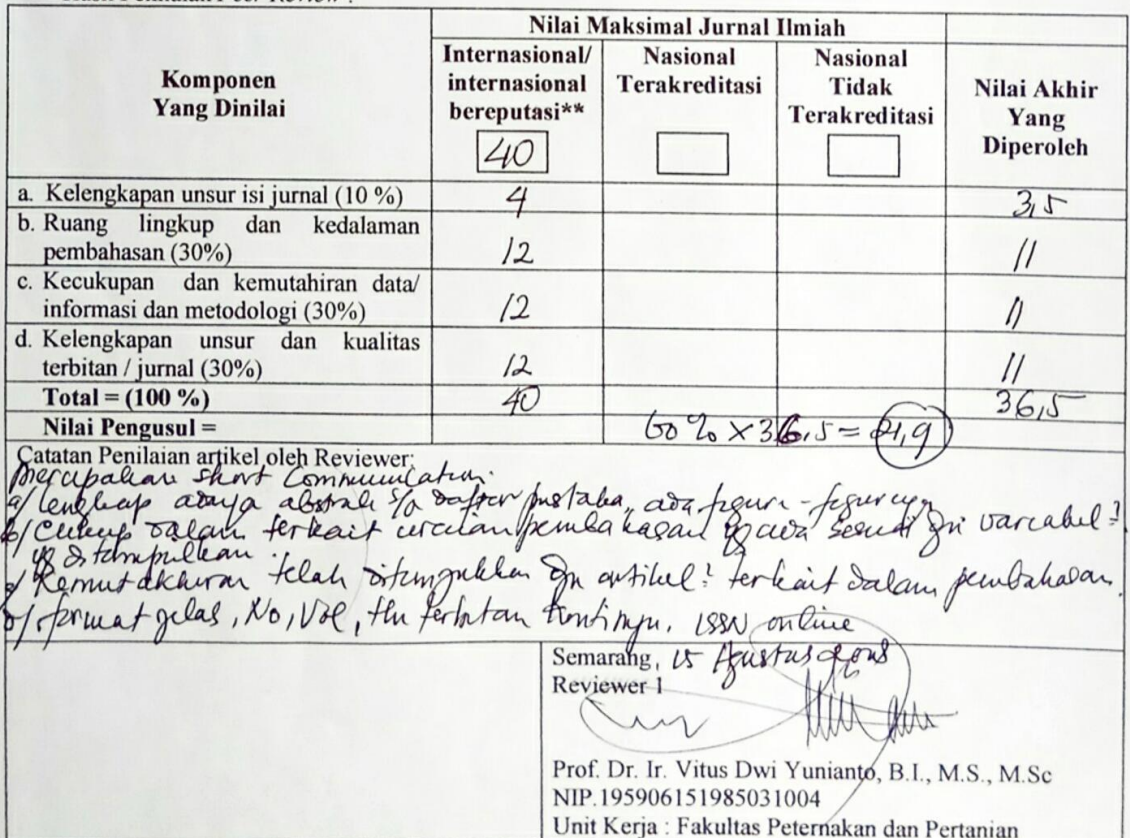 Nilai Maksimal Jurnal Ilmiah
Komponen
Yang Dinilai
Internasional/
internasional
bereputasi**
40
Nasional
Terakreditasi
Nasional
Tidak
Terakreditasi
Nilai Akhir
Yang
Diperoleh
a. Kelengkapan unsur isi jurnal (10 %) 4 3,5
b. Ruang lingkup dan kedalaman
pembahasan (30%) 12 11
c. Kecukupan dan kemutahiran data/
informasi dan metodologi (30%) 12 11
d. Kelengkapan unsur dan kualitas
terbitan / jurnal (30%) 12 11
Total = (100 %) 40 36,5
Nilai Pengusul = 60% x 36,5 = 21,9
Catatan Penilaian artikel oleh Reviewer:
Merupakan short Communication.
a/ lengkap adanya abstrak s/d daftar pustaka, ada figure-figurenya
b/ Cukup dalam terkait uraian pembahasan yg ada sesuai dgn variabel²
yg ditampilkan.
c/ Kemutakhiran telah ditunjukkan dgn artikel² terkait dalam pembahasan.
d/ format jelas, No, Vol, thn terbitan kontinyu. ISSN online
Semarang, 15 Agustus
Reviewer 1
Prof. Dr. Ir. Vitus Dwi Yunianto, B.I., M.S., M.Sc
NIP.195906151985031004
Unit Kerja : Fakultas Peternakan dan Pertanian